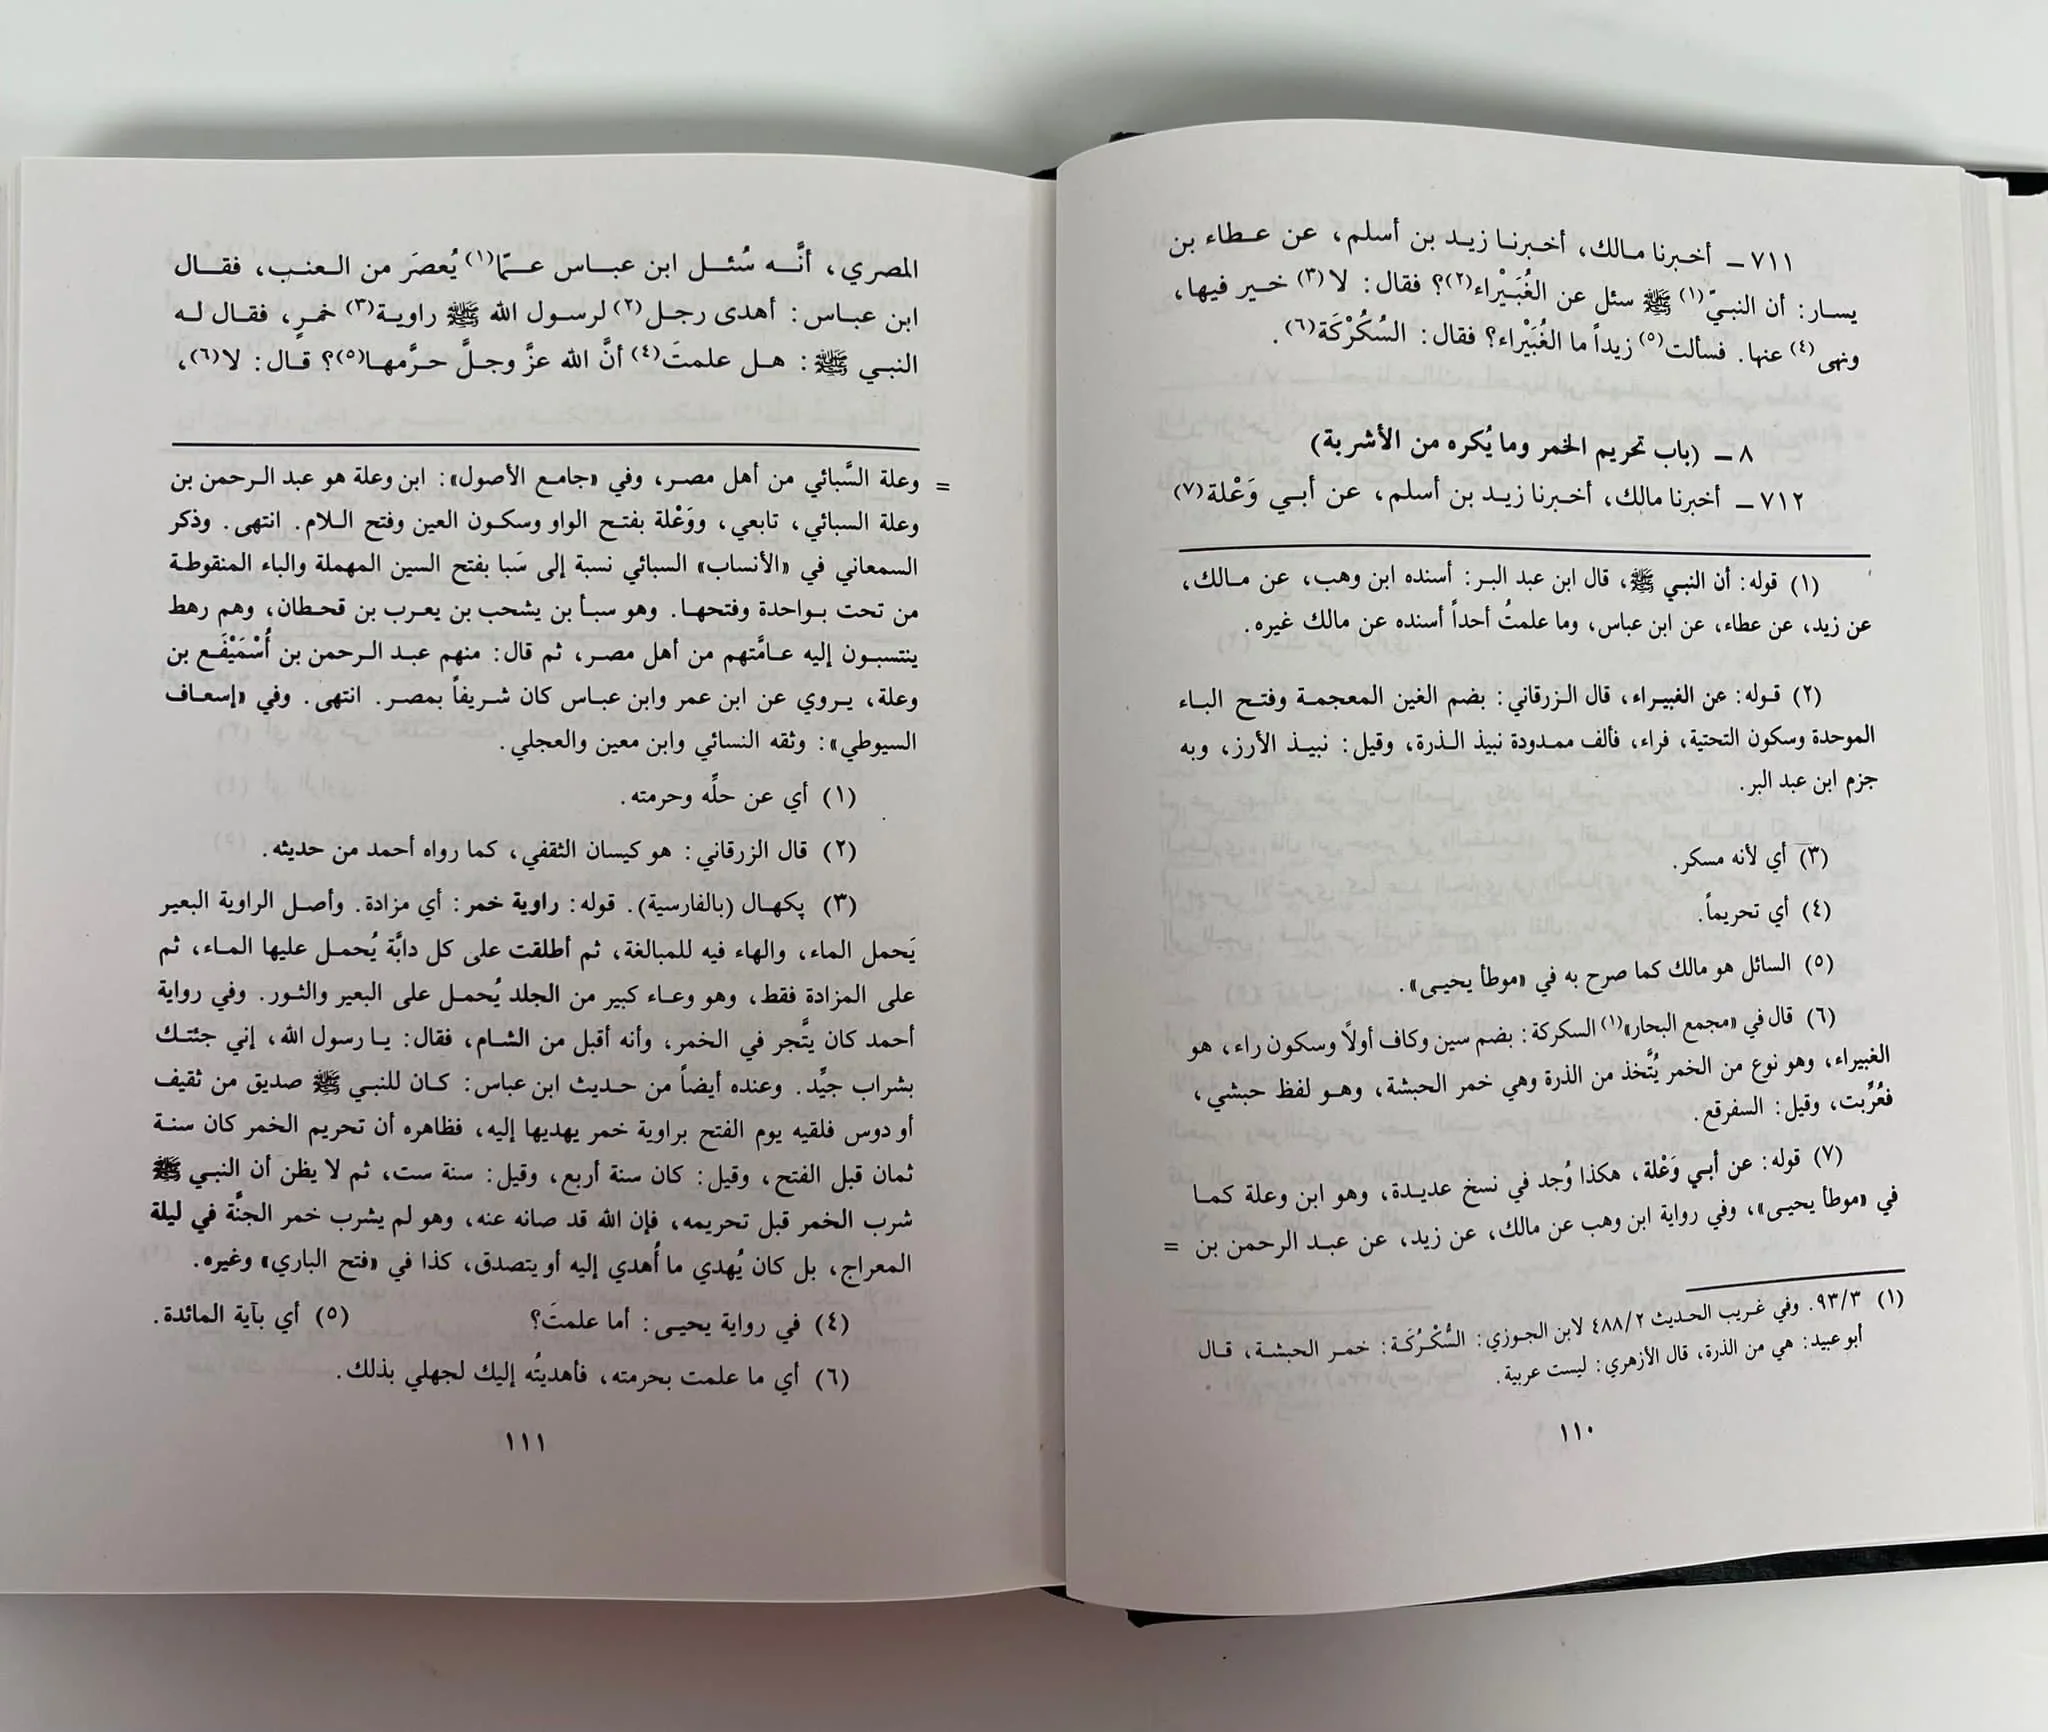 ٧١١ ـ أخبرنا مالك، أخبرنا زيد بن أسلم، عن عطاء بن
يسار: أن النبيّ(١) ﷺ سئل عن الغُبَيْراء(٢)؟ فقال: لا(٣) خير فيها،
ونهى(٤) عنها. فسألت(٥) زيداً ما الغُبَيْراء؟ فقال: السُكُرْكَة(٦).
٨ ـ (باب تحريم الخمر وما يُكره من الأشربة)
٧١٢ ـ أخبرنا مالك، أخبرنا زيد بن أسلم، عن أبي وَعْلة(٧)
(١) قوله: أن النبي ﷺ، قال ابن عبد البر: أسنده ابن وهب، عن مالك،
عن زيد، عن عطاء، عن ابن عباس، وما علمتُ أحداً أسنده عن مالك غيره.
(٢) قوله: عن الغبيراء، قال الزرقاني: بضم الغين المعجمة وفتح الباء
الموحدة وسكون التحتية، فراء، فألف ممدودة نبيذ الذرة، وقيل: نبيذ الأرز، وبه
جزم ابن عبد البر.
(٣) أي لأنه مسكر.
(٤) أي تحريماً.
(٥) السائل هو مالك كما صرح به في «موطأ يحيى».
(٦) قال في «مجمع البحار»(١) السكركة: بضم سين وكاف أولاً وسكون راء، هو
الغبيراء، وهو نوع من الخمر يُتَّخذ من الذرة وهي خمر الحبشة، وهو لفظ حبشي،
فعُرِّبت، وقيل: السفرقع.
(٧) قوله: عن أبي وَعْلة، هكذا وُجد في نسخ عديدة، وهو ابن وعلة كما
في «موطأ يحيى»، وفي رواية ابن وهب عن مالك، عن زيد، عن عبد الرحمن بن =
(١) ٩٣/٣. وفي غريب الحديث ٤٨٨/٢ لابن الجوزي: السُّكْرُكَة: خمر الحبشة، قال
أبو عبيد: هي من الذرة، قال الأزهري: ليست عربية.
١١٠
المصري، أنَّه سُئل ابن عباس عمّا(١) يُعصَر من العنب، فقال
ابن عباس: أهدى رجل(٢) لرسول الله ﷺ راوية(٣) خمرٍ، فقال له
النبي ﷺ: هل علمتَ(٤) أنَّ الله عزَّ وجلَّ حرَّمها(٥)؟ قال: لا(٦)،
= وعلة السَّبائي من أهل مصر، وفي «جامع الأصول»: ابن وعلة هو عبد الرحمن بن
وعلة السبائي، تابعي، ووَعْلة بفتح الواو وسكون العين وفتح اللام. انتهى. وذكر
السمعاني في «الأنساب» السبائي نسبة إلى سَبا بفتح السين المهملة والباء المنقوطة
من تحت بواحدة وفتحها. وهو سبأ بن يشحب بن يعرب بن قحطان، وهم رهط
ينتسبون إليه عامَّتهم من أهل مصر، ثم قال: منهم عبد الرحمن بن أُسْمَيْفَع بن
وعلة، يروي عن ابن عمر وابن عباس كان شريفاً بمصر. انتهى. وفي «إسعاف
السيوطي»: وثقه النسائي وابن معين والعجلي.
(١) أي عن حلِّه وحرمته.
(٢) قال الزرقاني: هو كيسان الثقفي، كما رواه أحمد من حديثه.
(٣) پكهال (بالفارسية). قوله: راوية خمر: أي مزادة. وأصل الراوية البعير
يَحمل الماء، والهاء فيه للمبالغة، ثم أطلقت على كل دابَّة يُحمل عليها الماء، ثم
على المزادة فقط، وهو وعاء كبير من الجلد يُحمل على البعير والثور. وفي رواية
أحمد كان يتَّجر في الخمر، وأنه أقبل من الشام، فقال: يا رسول الله، إني جئتك
بشراب جيِّد. وعنده أيضاً من حديث ابن عباس: كان للنبي ﷺ صديق من ثقيف
أو دوس فلقيه يوم الفتح براوية خمر يهديها إليه، فظاهره أن تحريم الخمر كان سنة
ثمان قبل الفتح، وقيل: كان سنة أربع، وقيل: سنة ست، ثم لا يظن أن النبي ﷺ
شرب الخمر قبل تحريمه، فإن الله قد صانه عنه، وهو لم يشرب خمر الجنَّة في ليلة
المعراج، بل كان يُهدي ما أُهدي إليه أو يتصدق، كذا في «فتح الباري» وغيره.
(٤) في رواية يحيى: أما علمتَ؟ (٥) أي بآية المائدة.
(٦) أي ما علمت بحرمته، فأهديتُه إليك لجهلي بذلك.
١١١